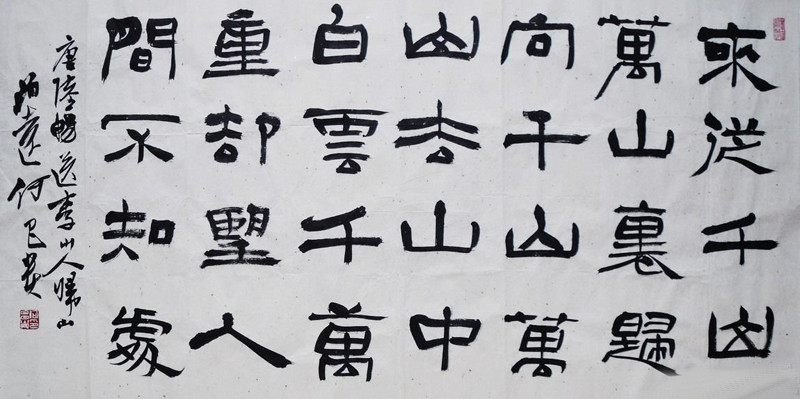 來從千山
萬山裏歸
向千山萬
山去山中
白雲千萬
重却望人
間不知處
唐陸暢送李山人歸山
何